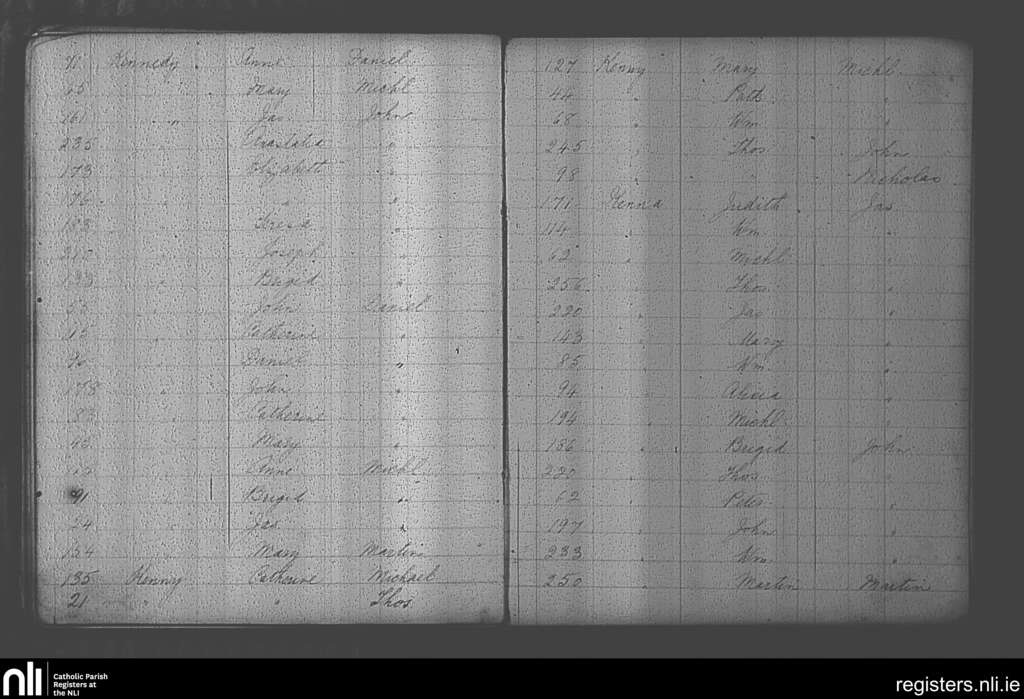 71 Kennedy Anne Daniel
65 " Mary Michl
161 " Jas John
235 " Anastatia "
173 " Elizabeth "
176 " " "
183 " Teresa "
210 " Joseph "
133 " Brigid "
53 " John Daniel
115 " Catherine "
96 " Daniel "
178 " John "
83 " Catherine "
46 " Mary "
" Anne Michl
91 " Brigid "
24 " Jas "
154 " Mary Martin
135 Kenny Catherine Michael
21 " " Thos
127 Kenny Mary Michl
44 " Patk "
68 " Wm "
245 " Thos John
98 " " Nicholas
171 Kenna Judith Jas
114 " Wm "
62 " Michl "
256 " Thos "
220 " Jas "
143 " Mary "
85 " Wm "
94 " Alicia "
194 " Michl "
156 " Brigid John
220 " Thos "
62 " Peter "
197 " John "
233 " Wm "
250 " Martin Martin
nli Catholic Parish
Registers at
the NLI
registers.nli.ie